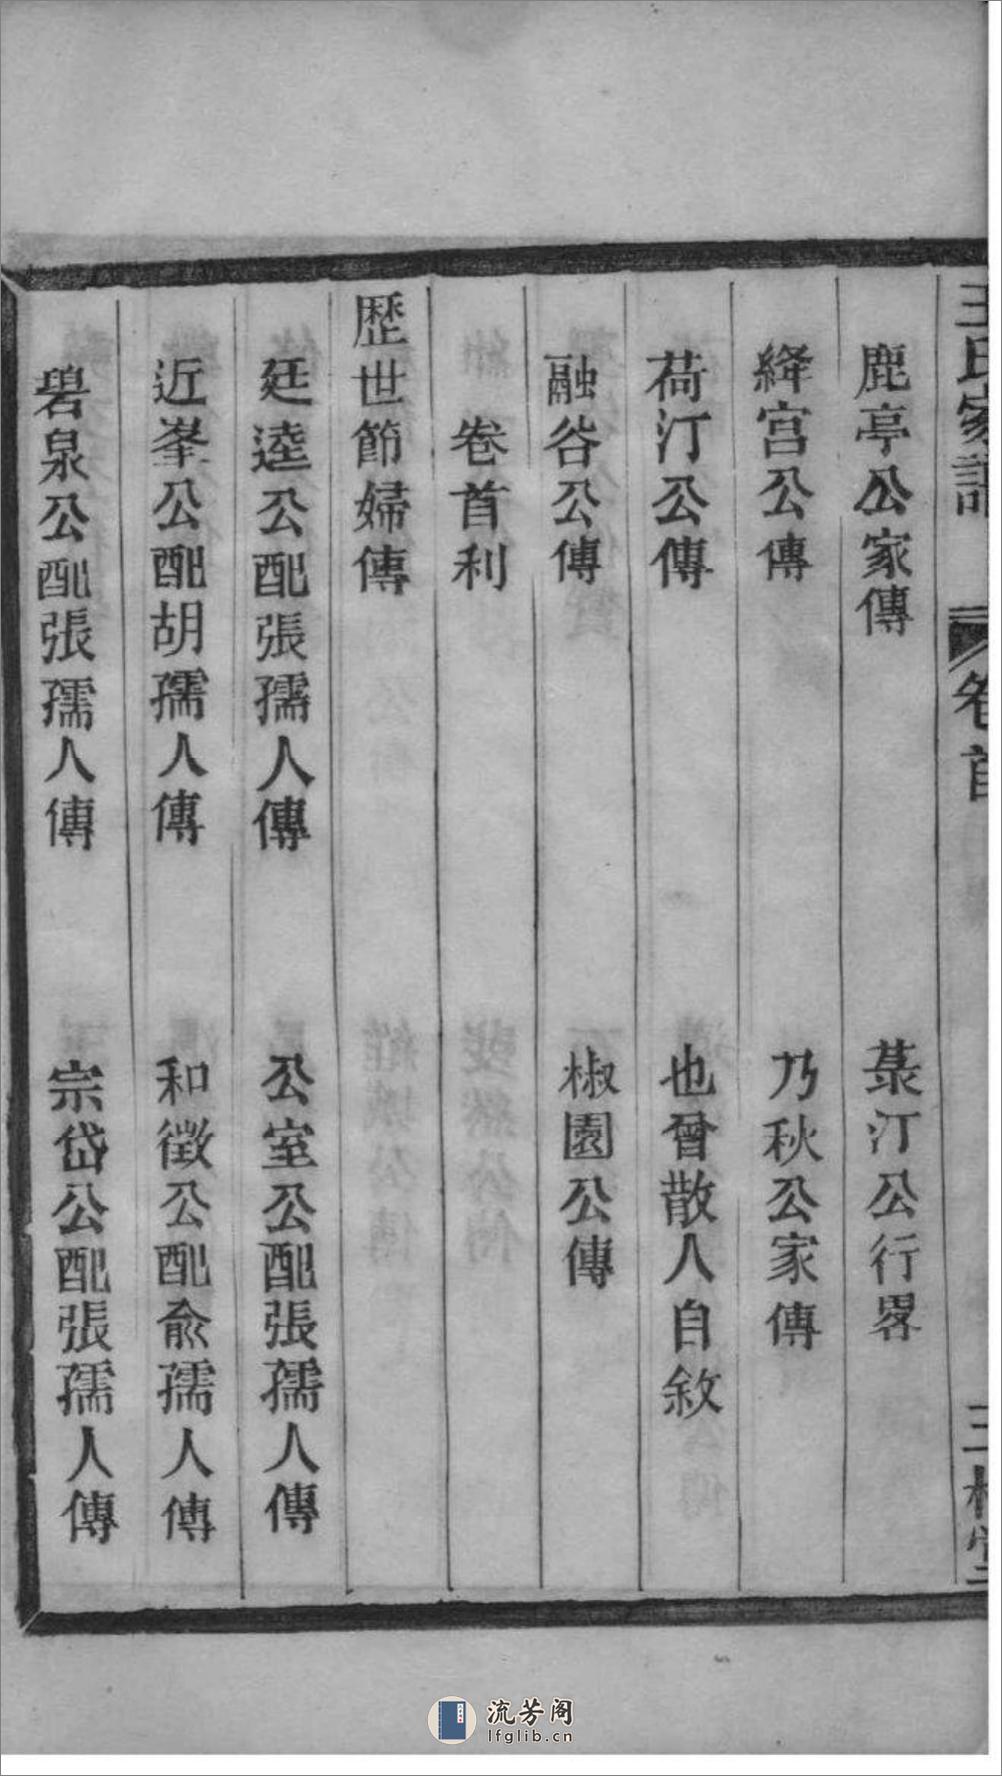 王氏家譜 卷首 三槐堂
鹿亭公家傳 菉汀公行畧
絳宫公傳 乃秋公家傳
荷汀公傳 也曾散人自敘
融谷公傳 椒園公傳
卷首利
歷世節婦傳
廷逵公配張孺人傳 公室公配張孺人傳
近峯公配胡孺人傳 和徵公配俞孺人傳
碧泉公配張孺人傳 宗岱公配張孺人傳
流芳阁
lfglib.cn